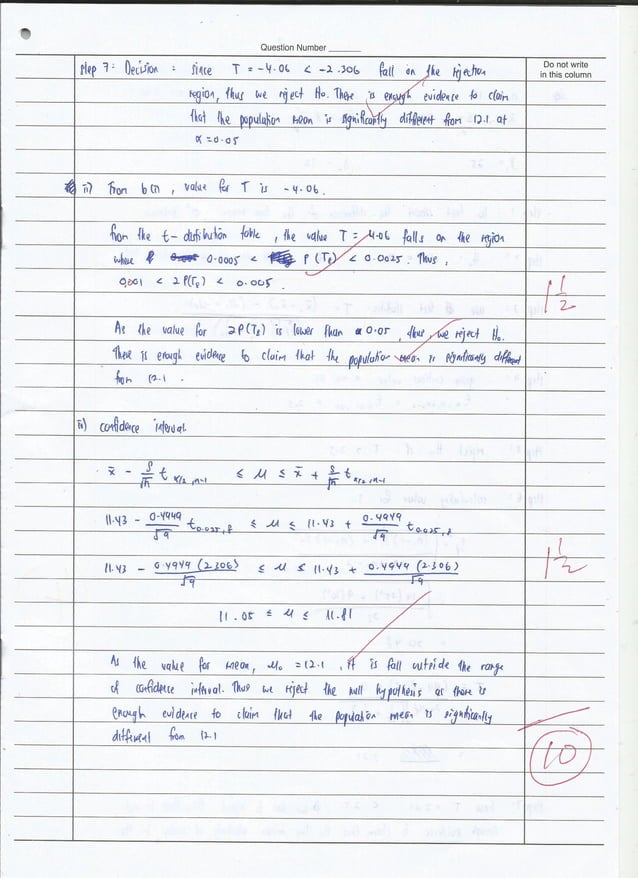 Question Number
Do not write
in this column
step 7: Decision : since T = -4.06 < -2.306 fall on the rejection
region, thus we reject Ho. There is enough evidence to claim
that the population mean is significantly different from 12.1 at
α = 0.05
ii) From b(i), value for T is -4.06.
from the t-distribution table, the value T = 4.06 falls on the region
where P 0.0005 < P(T8) < 0.0025. Thus,
0.001 < 2P(T8) < 0.005.
1 1/2
As the value for 2P(T8) is lower than α 0.05, thus, we reject Ho.
There is enough evidence to claim that the population mean is significantly different
from 12.1.
iii) confidence interval
x̄ - S/√n t α/2, n-1 ≤ μ ≤ x̄ + S/√n t α/2, n-1
11.43 - 0.4949/√9 t 0.025, 8 ≤ μ ≤ 11.43 + 0.4949/√9 t 0.025, 8
11.43 - 0.4949 (2.306)/√9 ≤ μ ≤ 11.43 + 0.4949 (2.306)/√9
1 1/2
11.05 ≤ μ ≤ 11.81
As the value for mean, μo = 12.1, it is fall outside the range
of confidence interval. Thus we reject the null hypothesis as there is
enough evidence to claim that the population mean is significantly
different from 12.1
10